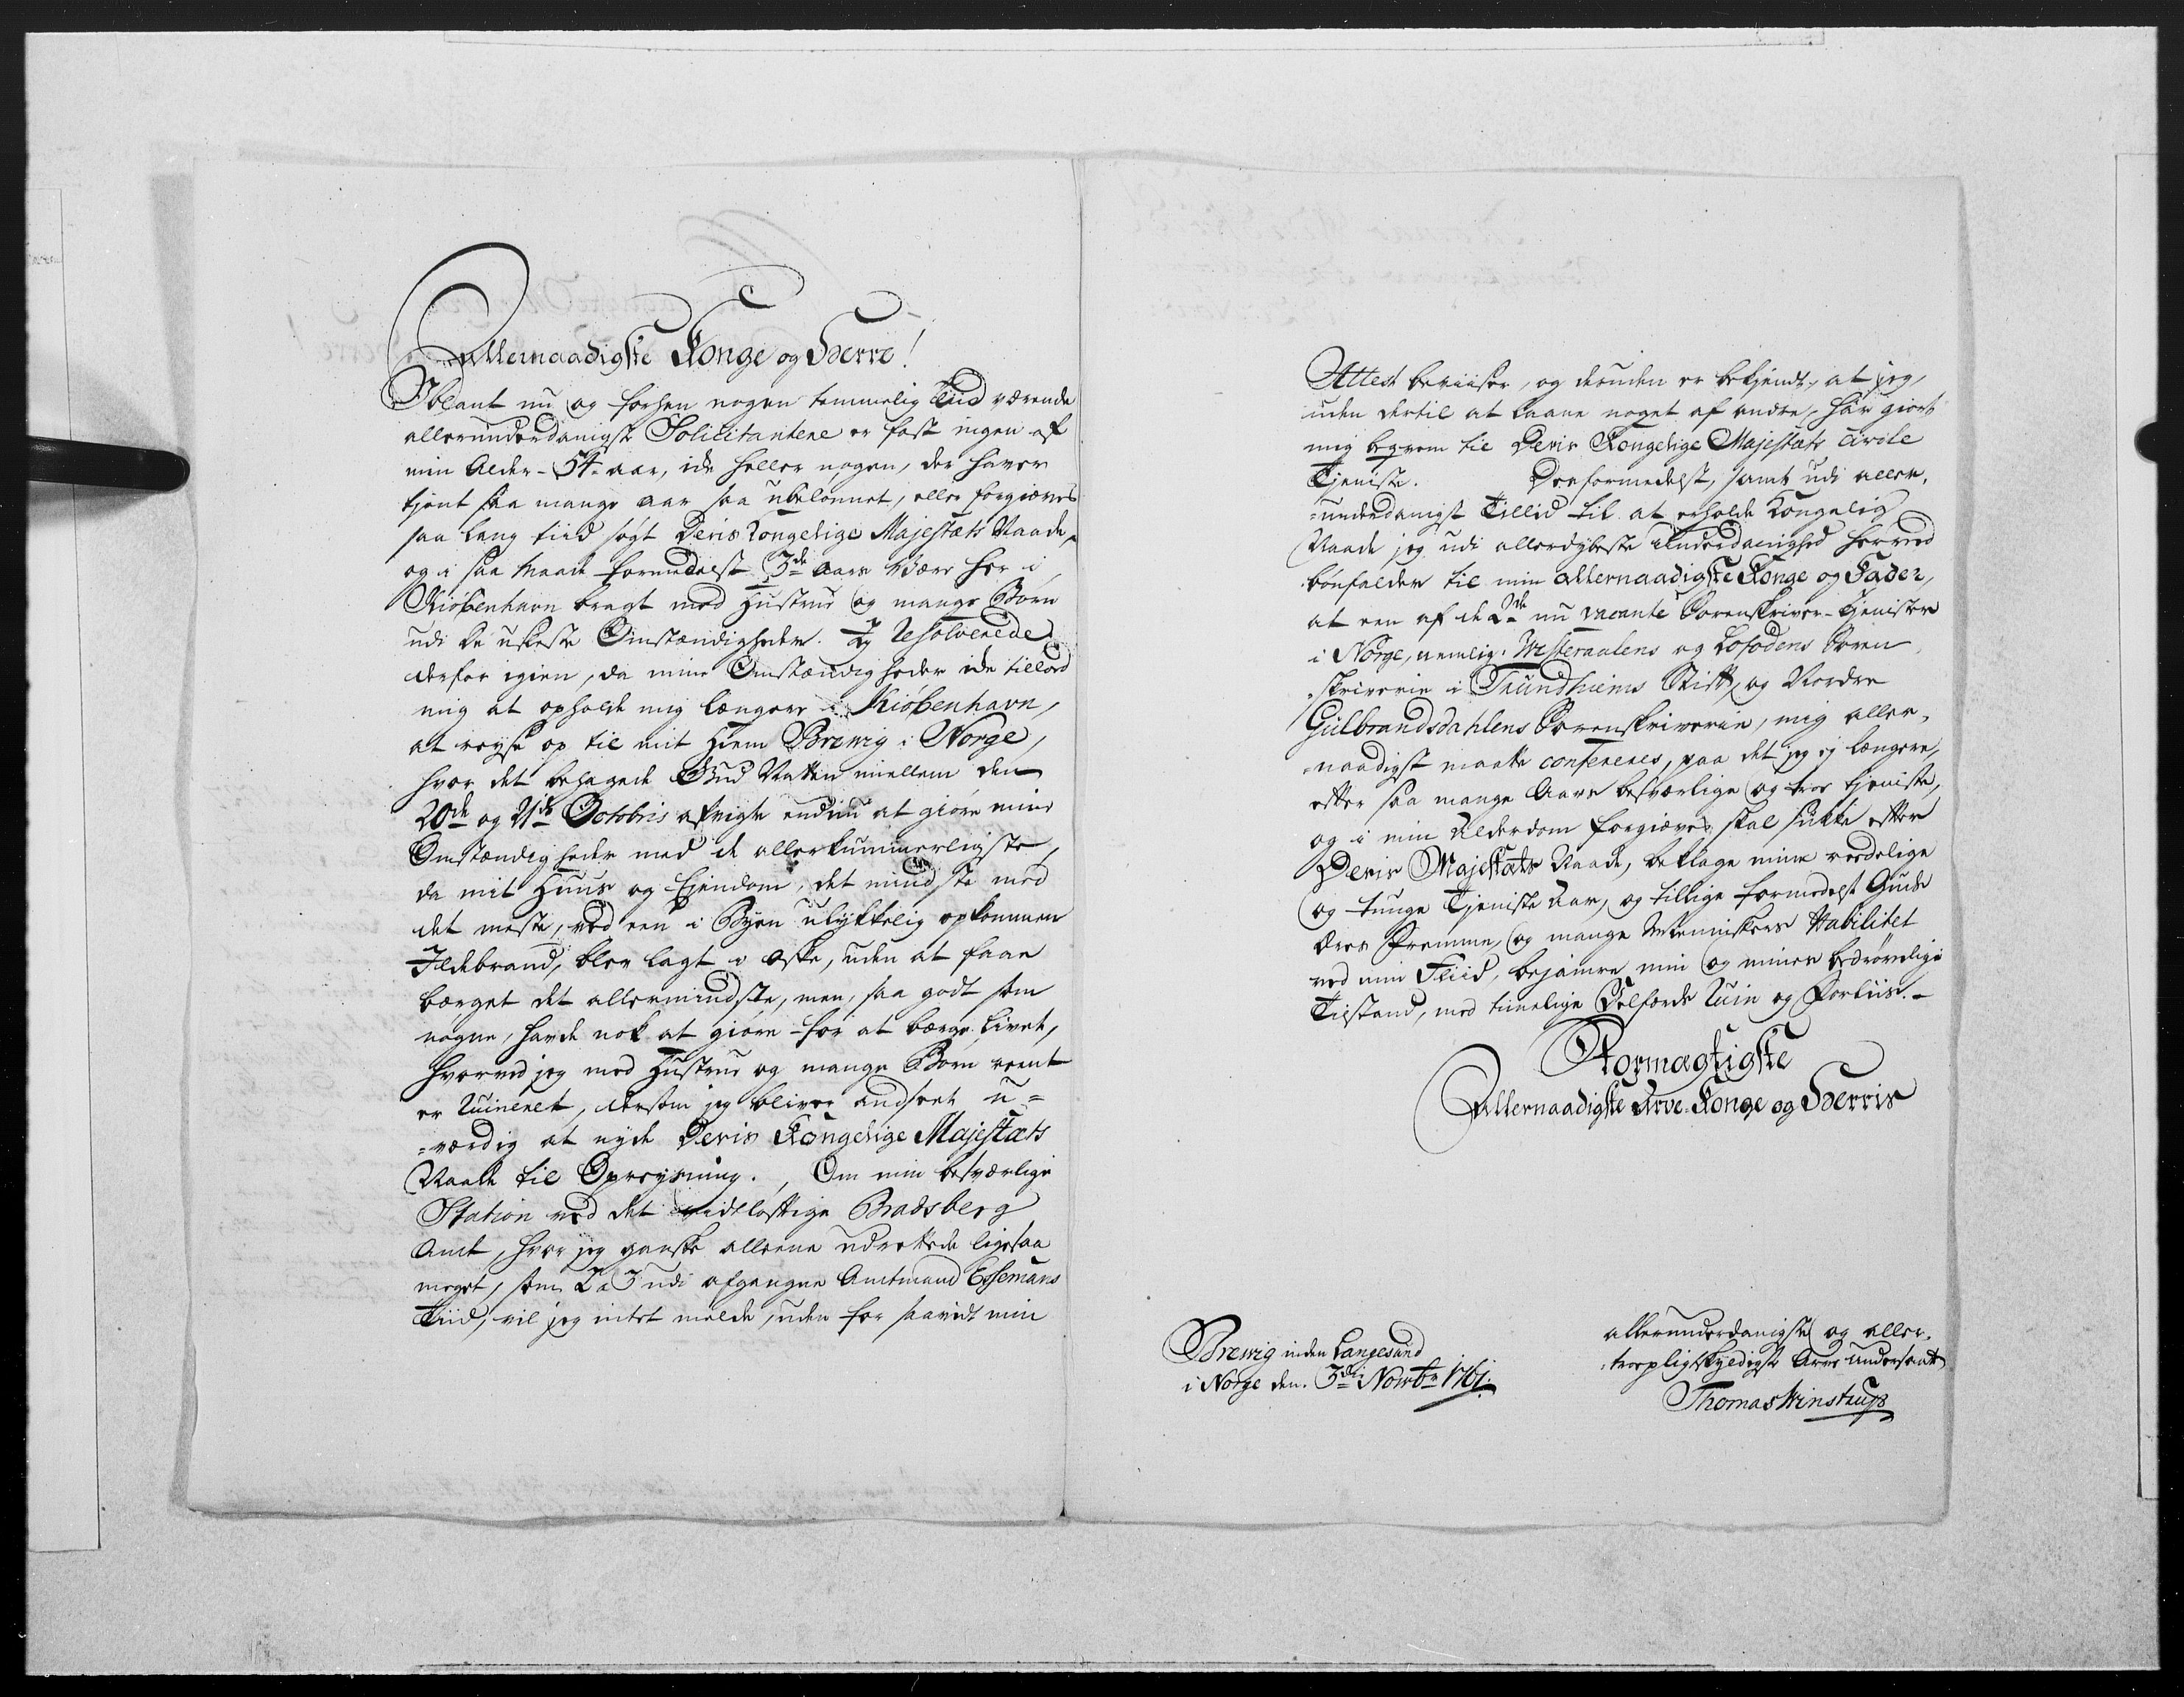 Allernaadigste Konge og Herre!
Iblant nu og forhen nogen temmelig Tiid værende
allerunderdanigste Solicitantene er fast ingen af
min Alder - 54 aar, ide heller nogen, der haver
tjent saa mange aar saa ubelønnet, eller forgiæves
saa lang tiid søgt Deris Kongelige Majestæts Naade,
og i saa Maade formedelst 3de Aars Være her i
Kiøbenhavn bragt med Hustrue og mange Børn
udi de usleste Omstændigheder. Jeg resolverede
derfor igien, da mine Omstændigheder ide tillod
mig at opholde mig længere i Kiøbenhavn,
at reyse op til mit Hiem Brewig i Norge,
hvor det behagede Gud Natten miellem den
20de og 21de Octobris afvigte endnu at giøre mine
Omstændigheder med de allerkummerligste,
da mit Huus og Eiendom, det mindste med
det meste, ved een i Byen ulykkelig opkommen
Ildebrand, blev lagt i Aske, uden at faae
bærget det allermindste, men, saa godt som
nogen, havde nok at giøre for at bærge Livet,
hvorved jeg med Hustrue og mange Børn reent
er ruineret, dersom jeg bliver andseet u=
=værdig at nyde Deris Kongelige Majestæts
Naade til Opreysning. Om min besværlige
Station ved det vidtløftige Bradsberg
Amt, hvor jeg ganske alleene udrettede ligesaa
meget, som 2 a 3 udi afgangne Amtmand Essemans
Tiid, vil jeg intet melde, uden for saavidt min
Attest beviiser, og desuden er bekjendt, at jeg,
uden dertil at laane noget af andre, har giort
mig beqvem til Deris Kongelige Majestæts civile
Tjeniste. Derformedelst, samt udi aller-
=underdanigst Tillid til at erholde Kongelig
Naade jeg udi allerdybeste Underdanighed herved
bønfalder til min allernaadigste Konge og Fader,
at een af de 2de nu vacante Sorenskriver-Tjenister
i Norge, nemlig: Westeraalens og Lofodens Soren-
=skriverie i Trundhiems Stift, og Nordre
Gulbrandsdahlens Sorenskriverie, mig aller-
=naadigst maatte confereres, paa det jeg ej længere,
efter saa mange Aars besværlige og troe tjeniste,
og i min Alderdom forgiæves skal sukke efter
Deris Majestæts Naade, beklage mine verdslige
og tunge Tjeniste Aar, og tillige formedelst Guds
Æres Fremme, og mange Menniskers Habilitet
ved min Fliid, bejamre min og mines bedrøvelige
Tilstand, med timelige Velfærds ruin og Forliis.-
Stormægtigste
Allernaadigste Arve-Konge og Herris
Brewig inden Langesund
i Norge den 3de Novbr 1761.
allerunderdanigste og aller-
=troepligtskyldigste Arve undersaat
Thomas Winstrup